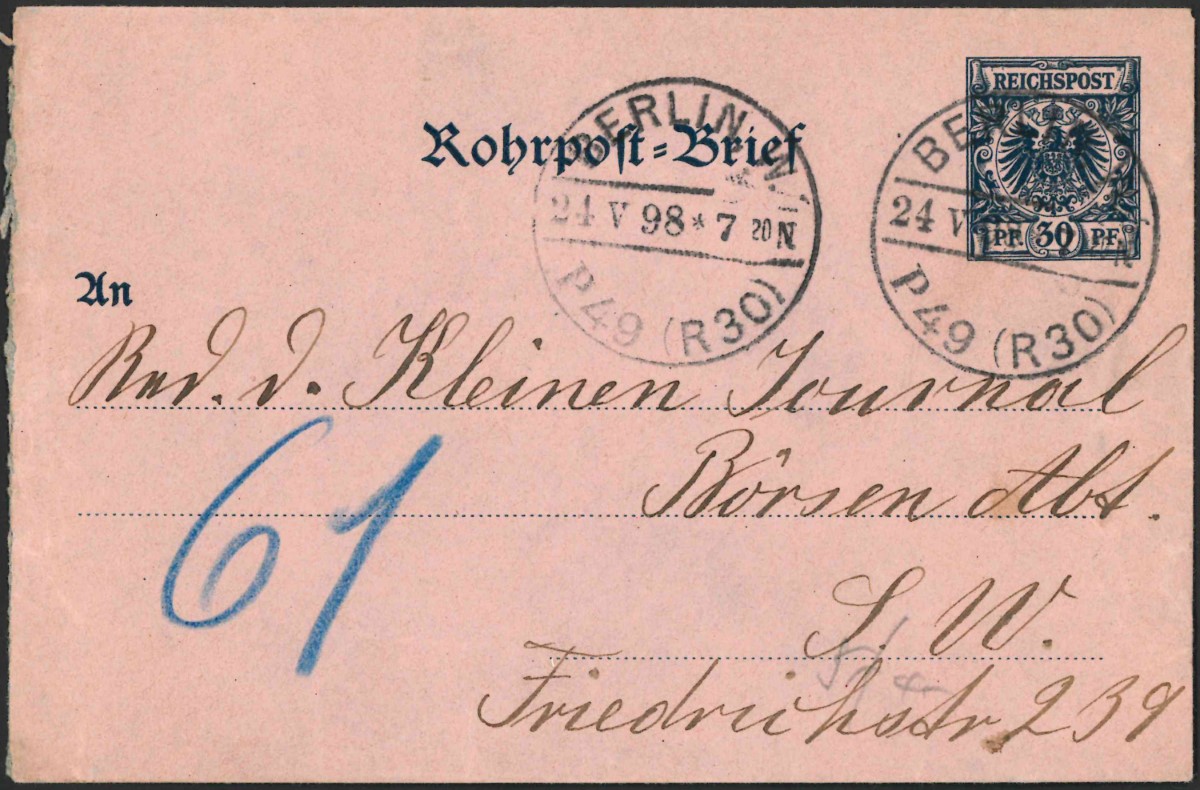 REICHSPOST
PF. 30 PF.
Rohrpost-Brief
BERLIN W.
24 V 98 * 7 20 N
P49 (R30)
24 V
P49 (R30)
An
Red. d. Kleinen Journal
Börsen Abt.
61
S. W.
Friedrichstr 239